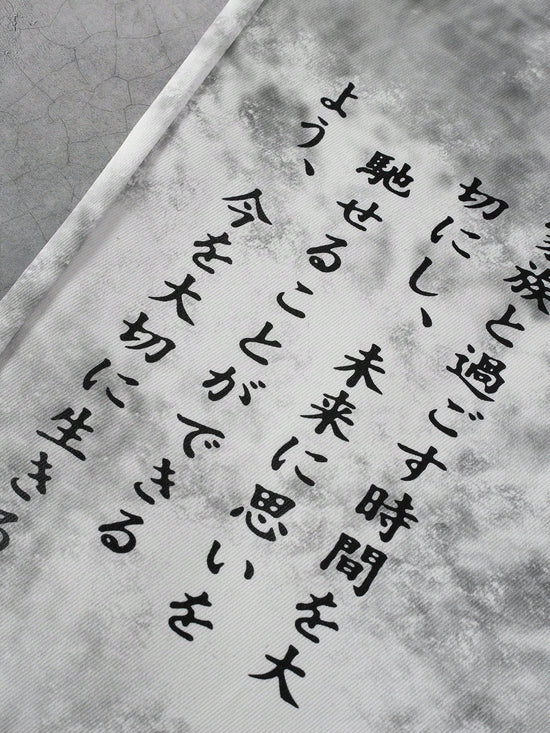 家族と過ごす時間を大
切にし、未来に思いを
馳せることができる
よう、今を大切に生きる